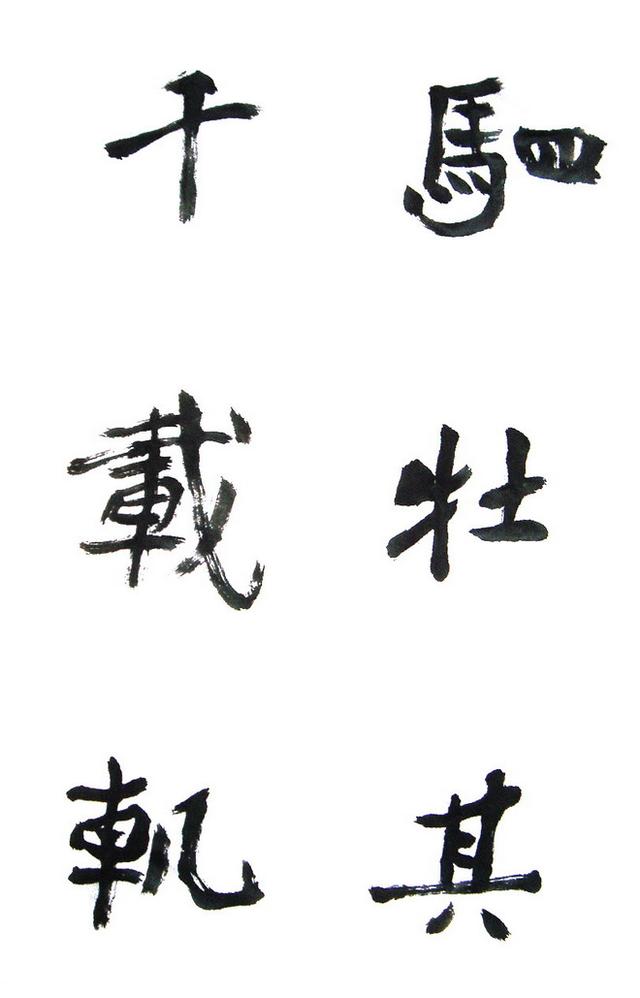 駟牡其
千載軌